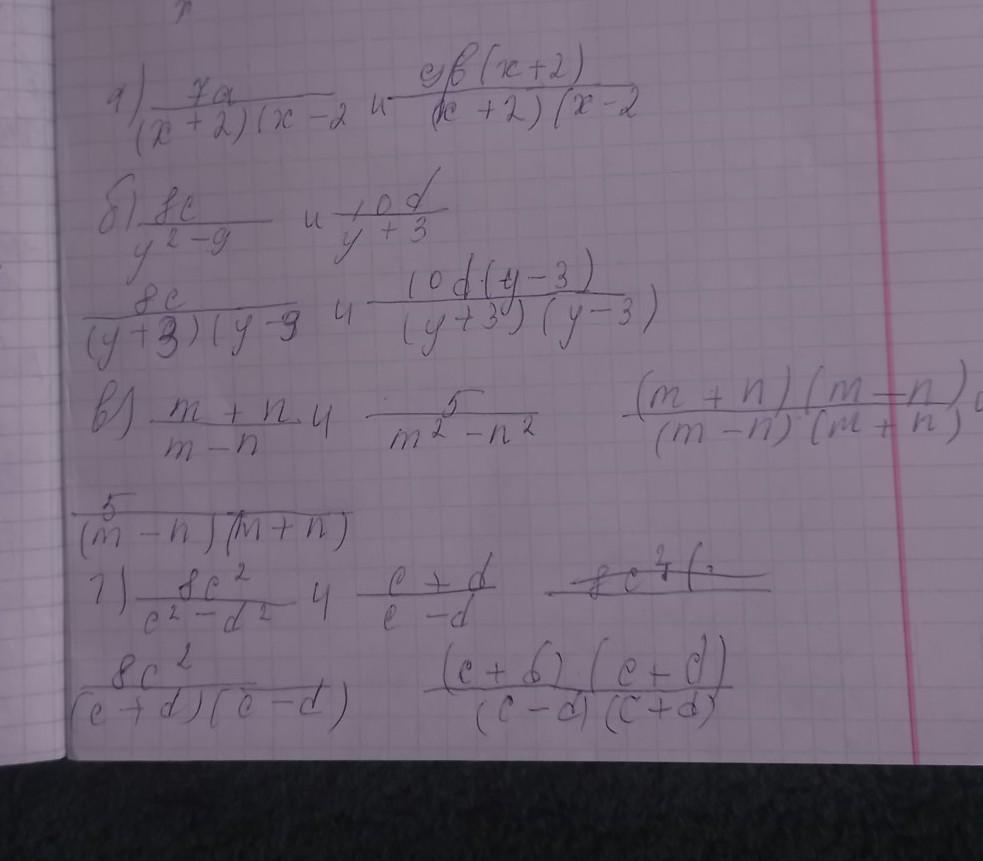 а) 7a/(x+2)(x-2 и 9b(x+2)/(x+2)(x-2
б) 8c/y²-9 и 10d/y+3
8c/(y+3)(y-3 и 10d·(y-3)/(y+3)(y-3)
в) m+n/m-n и 5/m²-n² (m+n)(m+n)/(m-n)(m+n)
5/(m-n)(m+n)
г) 8c²/c²-d² и c+d/c-d
8c²/(c+d)(c-d) (c+d)·(c+d)/(c-d)(c+d)